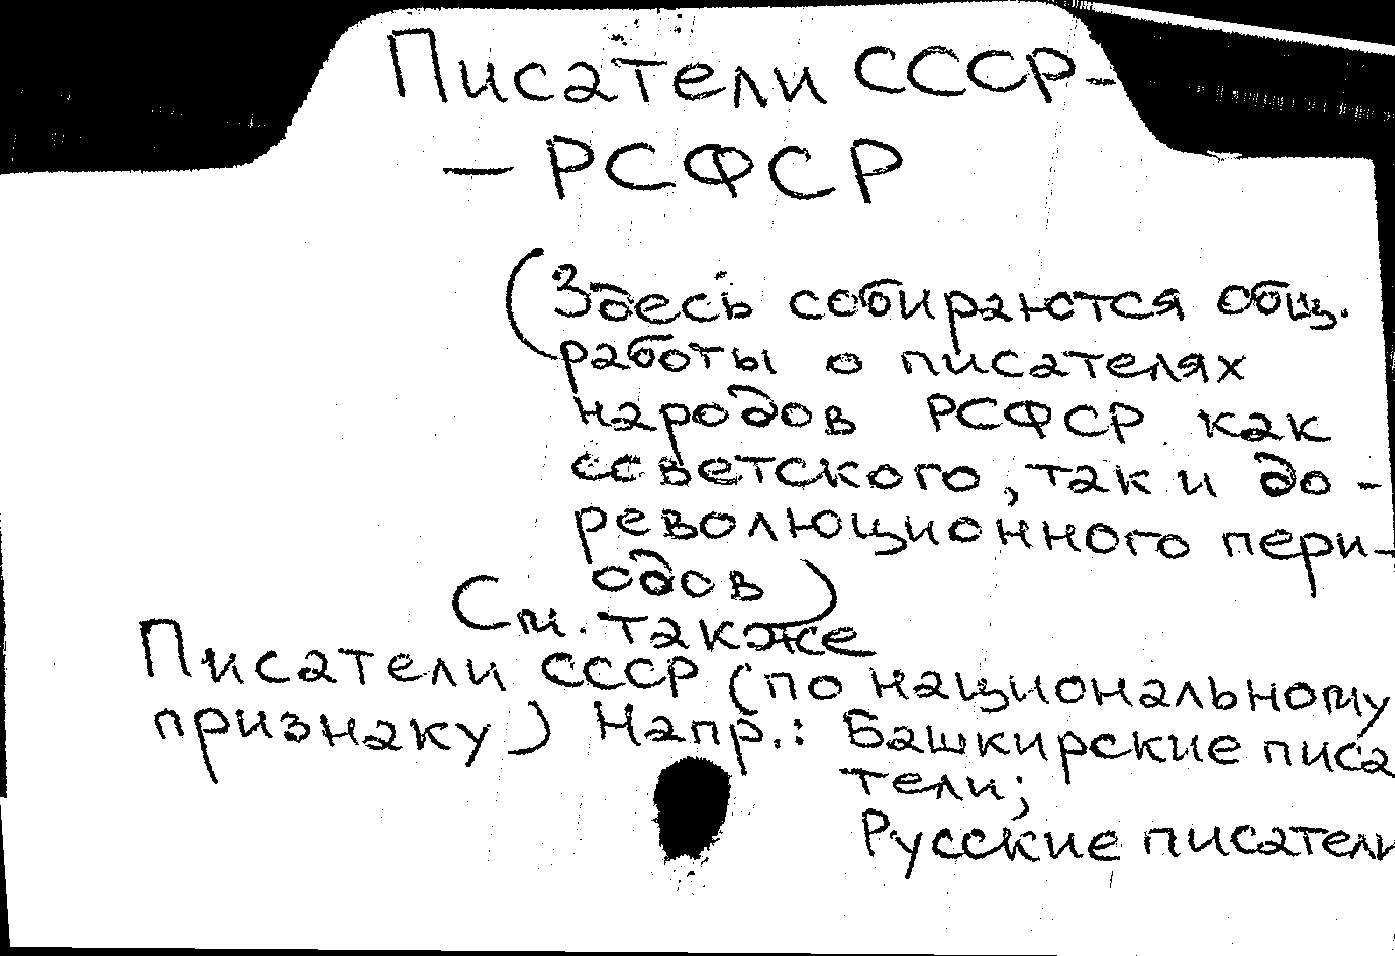 Писатели СССР-
- РСФСР
(Здесь собираются общ.
работы о писателях
народов РСФСР как
советского, так и до-
революционного пери-
одов)
См. также
Писатели СССР (по национальному
признаку) Напр.: Башкирские писа
тели;
Русские писатели